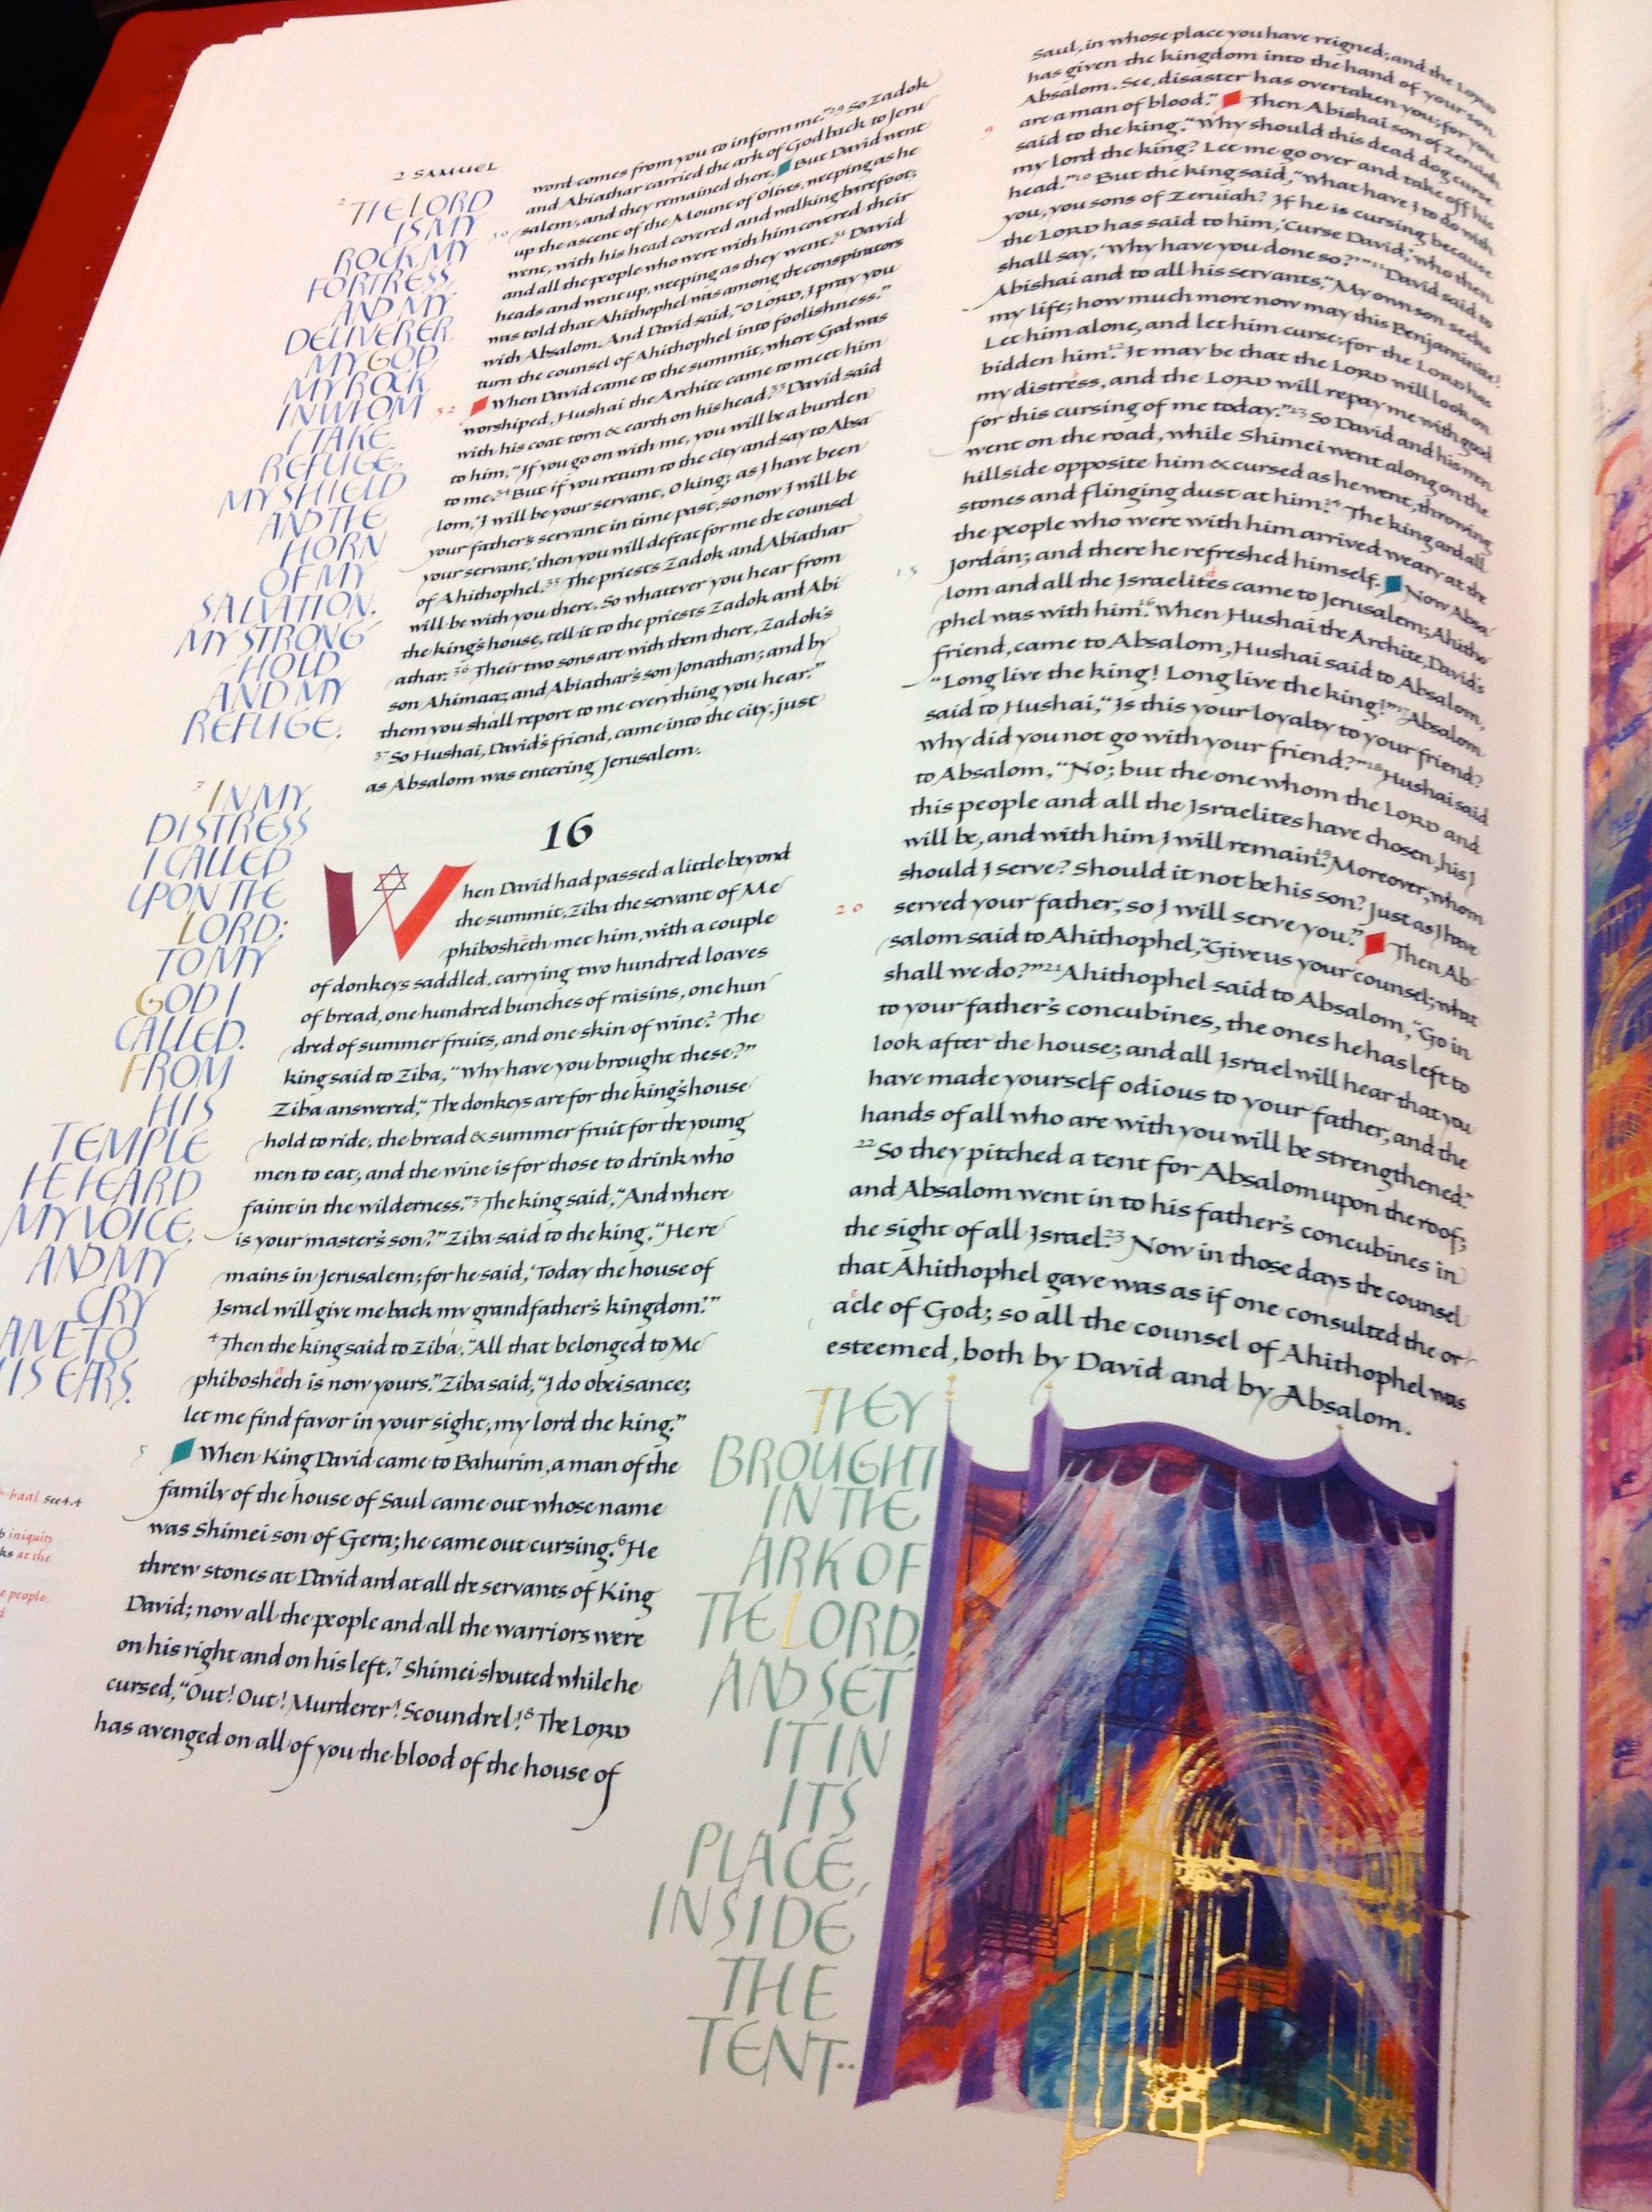 2 SAMUEL
2 THE LORD
IS MY
ROCK, MY
FORTRESS,
AND MY
DELIVERER,
MY GOD,
MY ROCK
IN WHOM
I TAKE
REFUGE,
MY SHIELD
AND THE
HORN
OF MY
SALVATION,
MY STRONG
HOLD
AND MY
REFUGE,
7 IN MY
DISTRESS
I CALLED
UPON THE
LORD;
TO MY
GOD I
CALLED.
FROM
HIS
TEMPLE
HE HEARD
MY VOICE,
AND MY
CRY
AME TO
IS EARS.
-baal see 4.4
iniquity
ks at the
e people,
word comes from you to inform me.” 29 So Zadok
and Abiathar carried the ark of God back to Jeru
salem, and they remained there. But David went
30 up the ascent of the Mount of Olives, weeping as he
went, with his head covered and walking barefoot;
and all the people who were with him covered their
heads and went up, weeping as they went. 31 David
was told that Ahithophel was among the conspirators
with Absalom. And David said, “O LORD, I pray you
turn the counsel of Ahithophel into foolishness.”
32 When David came to the summit, where God was
worshiped, Hushai the Archite came to meet him
with his coat torn & earth on his head. 33 David said
to him, “If you go on with me, you will be a burden
to me. 34 But if you return to the city and say to Absa
lom, ‘I will be your servant, O king; as I have been
your father's servant in time past, so now I will be
your servant,’ then you will defeat for me the counsel
of Ahithophel. 35 The priests Zadok and Abiathar
will be with you there. So whatever you hear from
the king's house, tell it to the priests Zadok and Abi
athar. 36 Their two sons are with them there, Zadok's
son Ahimaaz and Abiathar's son Jonathan; and by
them you shall report to me everything you hear.”
37 So Hushai, David's friend, came into the city, just
as Absalom was entering Jerusalem.
16
When David had passed a little beyond
the summit, Ziba the servant of Me
phibosheth met him, with a couple
of donkeys saddled, carrying two hundred loaves
of bread, one hundred bunches of raisins, one hun
dred of summer fruits, and one skin of wine. 2 The
king said to Ziba, “Why have you brought these?”
Ziba answered, “The donkeys are for the king's house
hold to ride, the bread & summer fruit for the young
men to eat, and the wine is for those to drink who
faint in the wilderness.” 3 The king said, “And where
is your master's son?” Ziba said to the king, “He re
mains in Jerusalem; for he said, ‘Today the house of
Israel will give me back my grandfather's kingdom.’”
4 Then the king said to Ziba, “All that belonged to Me
phibosheth a is now yours.” Ziba said, “I do obeisance;
let me find favor in your sight, my lord the king.”
5 When King David came to Bahurim, a man of the
family of the house of Saul came out whose name
was Shimei son of Gera; he came out cursing. 6 He
threw stones at David and at all the servants of King
David; now all the people and all the warriors were
on his right and on his left. 7 Shimei shouted while he
cursed, “Out! Out! Murderer! Scoundrel! 8 The LORD
has avenged on all of you the blood of the house of
Saul, in whose place you have reigned; and the LORD
has given the kingdom into the hand of your son
Absalom. See, disaster has overtaken you; for you
are a man of blood.” Then Abishai son of Zeruiah
9 said to the king, “Why should this dead dog curse
my lord the king? Let me go over and take off his
head.” 10 But the king said, “What have I to do with
you, you sons of Zeruiah? If he is cursing because
the LORD has said to him, ‘Curse David,’ who then
shall say, ‘Why have you done so?’” 11 David said to
Abishai and to all his servants, “My own son seeks
my life; how much more now may this Benjaminite!
Let him alone, and let him curse; for the LORD has
bidden him. 12 It may be that the LORD will look on
my distress, and the LORD will repay me with good
for this cursing of me today.” 13 So David and his men
went on the road, while Shimei went along on the
hillside opposite him & cursed as he went, throwing
stones and flinging dust at him. 14 The king and all
the people who were with him arrived weary at the
Jordan; and there he refreshed himself. Now Absa
15 lom and all the Israelites came to Jerusalem; Ahitho
phel was with him. 16 When Hushai the Archite, David's
friend, came to Absalom, Hushai said to Absalom,
“Long live the king! Long live the king!” 17 Absalom
said to Hushai, “Is this your loyalty to your friend?
Why did you not go with your friend?” 18 Hushai said
to Absalom, “No; but the one whom the LORD and
this people and all the Israelites have chosen, his I
will be, and with him I will remain. 19 Moreover, whom
should I serve? Should it not be his son? Just as I have
served your father, so I will serve you.” Then Ab
20 salom said to Ahithophel, “Give us your counsel; what
shall we do?” 21 Ahithophel said to Absalom, “Go in
to your father's concubines, the ones he has left to
look after the house; and all Israel will hear that you
have made yourself odious to your father, and the
hands of all who are with you will be strengthened.”
22 So they pitched a tent for Absalom upon the roof;
and Absalom went in to his father's concubines in
the sight of all Israel. 23 Now in those days the counsel
that Ahithophel gave was as if one consulted the or
acle of God; so all the counsel of Ahithophel was
esteemed, both by David and by Absalom.
THEY
BROUGHT
IN THE
ARK OF
THE LORD,
AND SET
IT IN
ITS
PLACE,
INSIDE
THE
TENT..